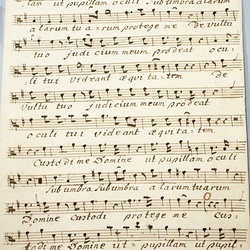 lam ut pupillam oculi sub umbra alarum
alarum tua - rum protege me De vultu
tuo judicium meum prodeat ocu:
li tui videant æquita - tem De
vultu tuo judicium meum prodeat
oculi tui videant æquita - tem
Custodi me Domine ut pupillam oculi
sub umbra sub umbra alarum tuarum
Domine Custodi protege me Cus:
todi me Domine ut - pupillam ut pupil